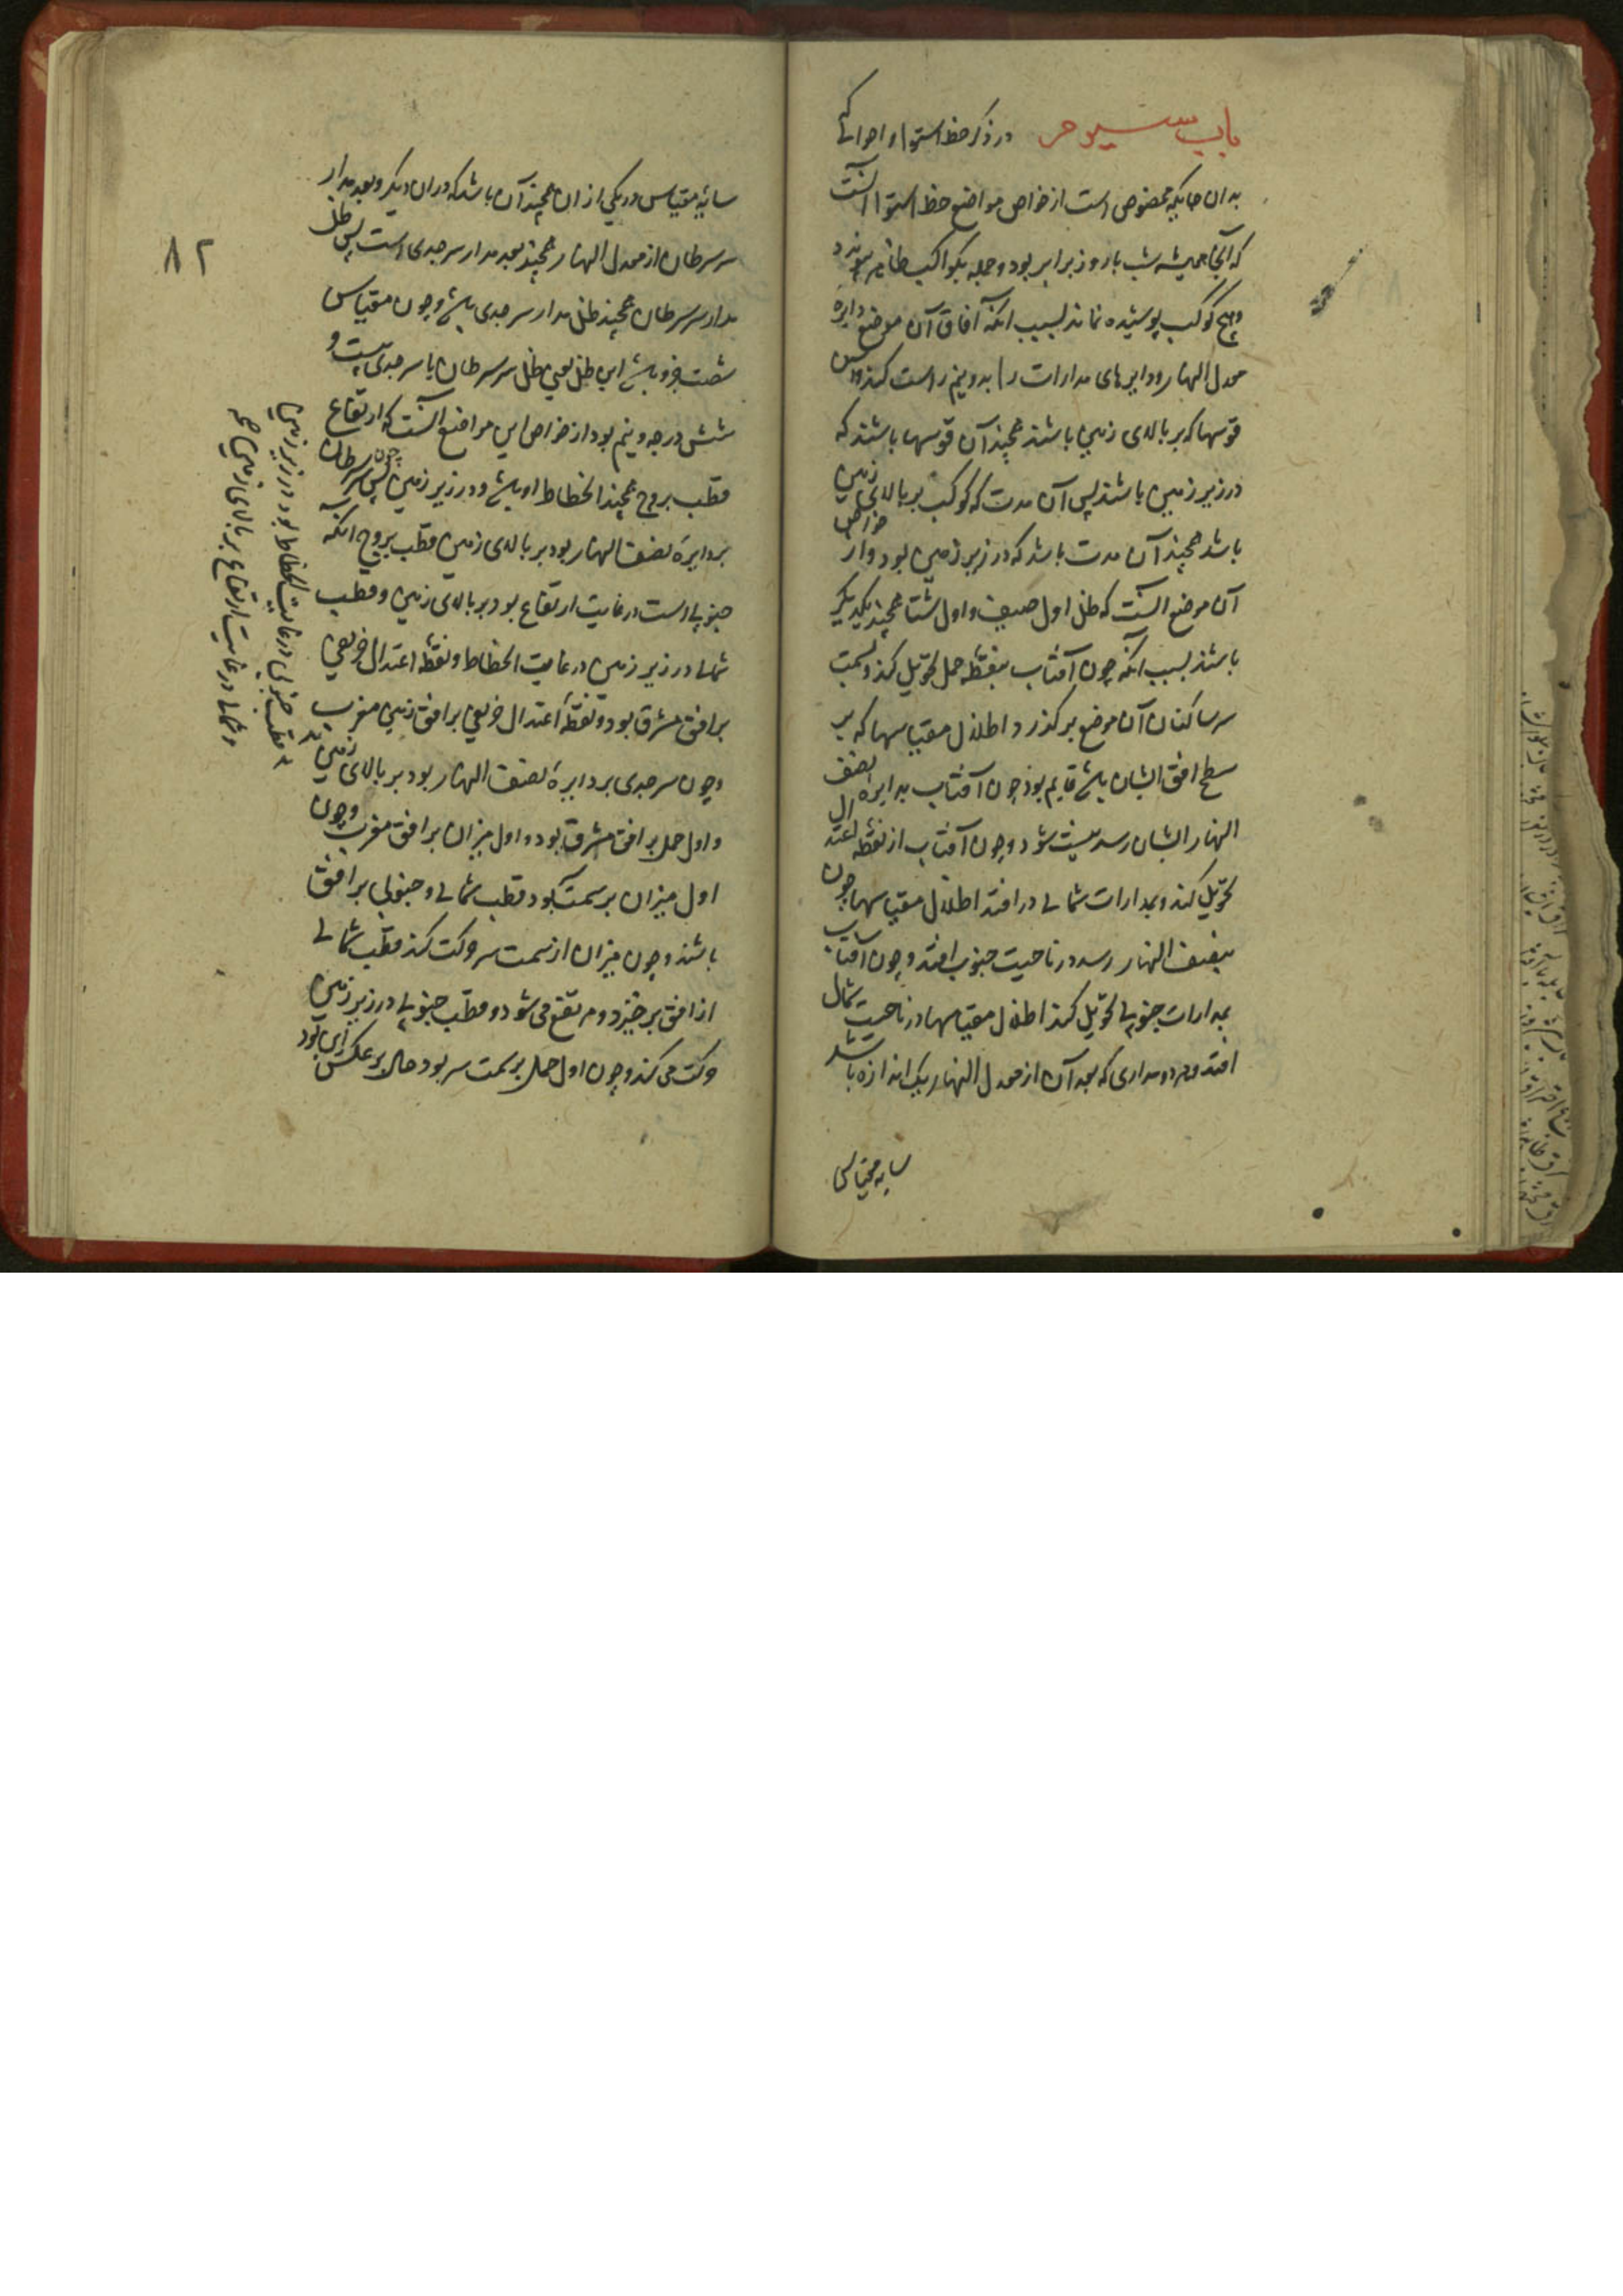 باب سیوم در ذکر خط استوا و احوالی که
بدان جایگه مخصوص است از خواص مواضع خط استوا آنست
که آنجا همیشه شب با روز برابر بود و جمله کواکب ظاهر شوند
و هیچ کوکب پوشیده نماند بسبب انکه آفاق آن موضع دایره
معدل النهار و دایرهای مدارات را بدو نیم راست کند پس
قوسها که بر بالای زمین باشند همچند آن قوسها باشند که
در زیر زمین باشند پس آن مدت که کوکب بر بالای زمین
باشد همچند آن مدت باشد که در زیر زمین بود و از خواص
آن موضع آنست که ظل اول صیف و اول شتا همچند یکدیگر
باشند بسبب انکه چون آفتاب بنقطه حمل تحویل کند و بسمت
سر ساکنان آن موضع برگذرد و اطلال مقیاسها که بر
سطح افق ایشان باشد قایم بود چون آفتاب بدایره نصف
النهار ایشان رسد نیست شود و چون آفتاب از نقطه اعتدال
تحویل کند و بمدارات شمالی در افتد اطلال مقیاسها چون
بنصف النهار رسد در ناحیت جنوب افتد و چون آفتاب
بمدارات جنوبی تحویل کند اطلال مقیاسها در ناحیت شمال
افتد و هر دو مداری که بعد آن از معدل النهار یک اندازه باشد
سایه مقیاس
۸۲
سایه مقیاس در یکی از ان همچند آن باشد که در ان دیگر و بعد مدار
سر سرطان از معدل النهار همچند بعد مدار سر جدی است پس ظل
مدار سر سرطان همچند ظل مدار سر جدی باشد و چون مقیاس
شصت جزو باشد این ظل یعنی ظل سر سرطان یا سر جدی بیست و
شش درجه و نیم بود از خواص این مواضع آنست که ارتفاع
قطب بروج همچند انحطاط او باشد در زیر زمین پس چون سر سرطان
بر دایره نصف النهار بود بر بالای زمین قطب بروج انکه
جنوبی است در غایت ارتفاع بود بر بالای زمین و قطب
شمالی در زیر زمین در غایت انحطاط و نقطه اعتدال خریفی
بر افق مشرق بود و نقطه اعتدال خریفی بر افق زمین مغرب
و چون سر جدی بر دایره نصف النهار بود بر بالای زمین
و اول حمل بر افق مشرق بود و اول میزان بر افق مغرب و چون
اول میزان بر سمت بود قطب شمالی و جنوبی بر افق
باشند و چون میزان از سمت سر حرکت کند قطب شمالی
از افق برخیزد و مرتفع می شود و قطب جنوبی در زیر زمین
حرکت می کند و چون اول حمل بر سمت سر بود حال بر عکس این بود
قطب جنوبی در غایت انحطاط بود در زیر زمین
و شمالی در غایت ارتفاع بر بالای زمین صح